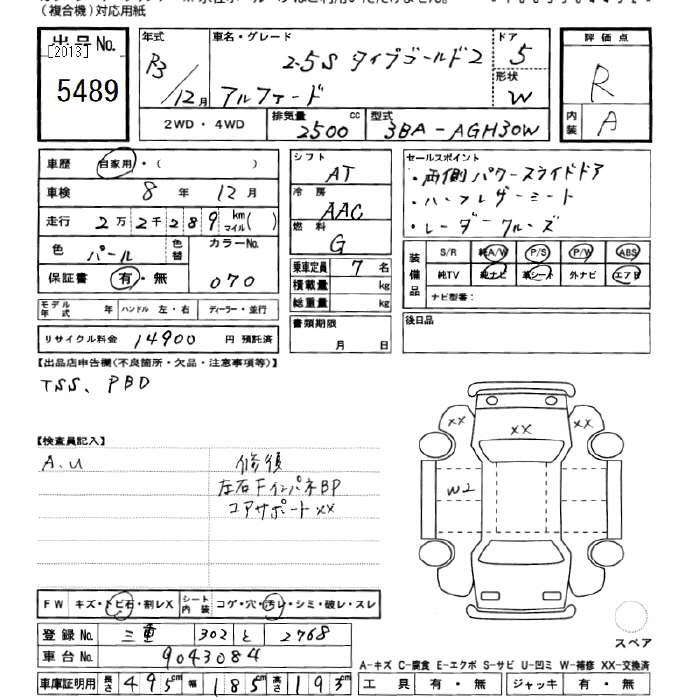 (複合機)対応用紙
出品No.
[2013]
5489
年式
R3/12月
車名・グレード
2.5S タイプゴールド2
アルファード
ドア
5
形状
W
評価点
R
内装
A
2WD・4WD
排気量
2500 cc
型式
3BA-AGH30W
車歴 自家用・( )
車検 8 年 12 月
走行 2万2千289 km マイル( )
色 パール 色替
カラーNo.
070
保証書 有・無
モデル年式 年 ハンドル 左・右 ディーラー・並行
リサイクル料金 14900 円 預託済
シフト
AT
冷房
AAC
燃料
G
乗車定員 7 名
積載量 kg
総重量 kg
書類期限
月 日
セールスポイント
・両側パワースライドドア
・ハーフレザーシート
・レーダークルーズ
装備品
S/R 純A/W P/S P/W ABS
純TV 純ナビ 革シート 外ナビ エアB
ナビ型番:
後日品
【出品店申告欄(不良箇所・欠品・注意事項等)】
TSS、PBD
【検査員記入】
A.U
修復
左右FインパネBP
コアサポートXX
XX
XX
XX
W2
FW キズ・トビ石・割レX シート内装 コゲ・穴・汚レ・シミ・破レ・スレ
登録No. 三重 302 と 2768
車台No. 9043084
車庫証明用 長さ 495cm 幅 185cm 高さ 193cm
スペア
A-キズ C-腐食 E-エクボ S-サビ U-凹ミ W-補修 XX-交換済
工具 有・無 ジャッキ 有・無